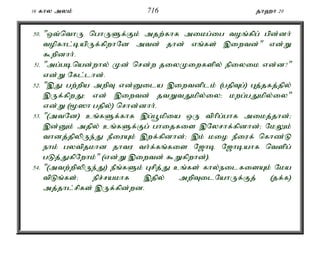 16 கால அலம் 716 தாஹா 20
50. "ஒவ்வொரு பொருளுக்கும் அதற்காக அமைப்பை வழங்கிப் பின்னர்
வழிகாட்டியிருக்கிறானே அவன் தான் எங்கள் இறைவன்" என்று
கூறினார்.
51. "அப்படியென்றால் முன் சென்ற தலைமுறைகளின் நிலைமை என்ன?"
என்று கேட்டான்.
52. "இது பற்றிய அறிவு என்னுடைய இறைவனிடம் (பதிவுப்) புத்தகத்தில்
இருக்கிறது; என் இறைவன் தவறுவதுமில்லை; மறப்பதுமில்லை"
என்று (மூஸா பதில்) சொன்னார்.
53. "(அவனே) உங்களுக்காக இப்பூமியை ஒரு விரிப்பாக அமைத்தான்;
இன்னும் அதில் உங்களுக்குப் பாதைகளை இலேசாக்கினான்; மேலும்
வானத்திலிருந்து நீரையும் இறக்கினான்; இம் மழை நீரைக் கொண்டு
நாம் பலவிதமான தாவர வர்க்கங்களை ஜோடி ஜோடியாக வெளிப்
படுத்துகிறோம்" (என்று இறைவன் கூறுகிறான்)
54. "(அவற்றிலிருந்து) நீங்களும் புசித்து உங்கள் கால்நடைகளையும் மேய
விடுங்கள்; நிச்சயமாக இதில் அறிவுடையோருக்குத் (தக்க)
அத்தாட்சிகள் இருக்கின்றன.